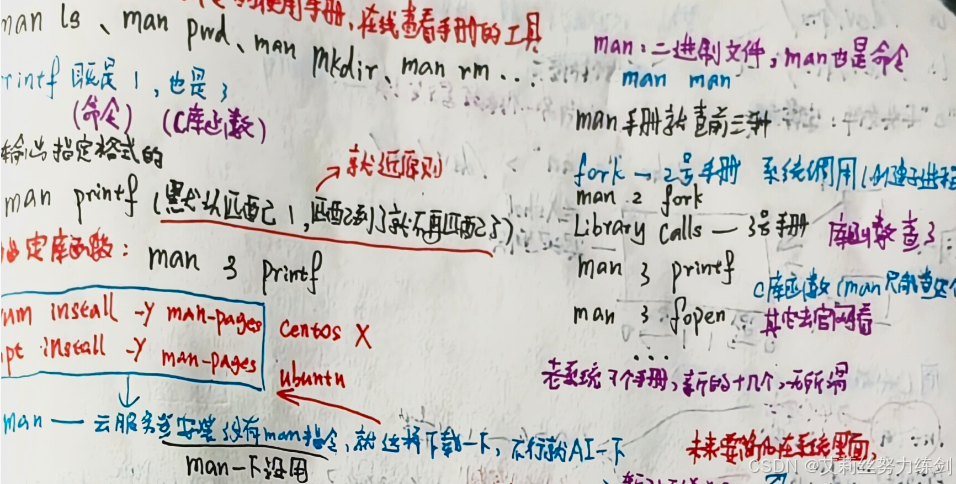 使用手册，在线查看手册的工具
man ls、man pwd、man mkdir、man rm ...
rintf 既是 1，也是 3
(命令) (C库函数)
输出指定格式的
就近原则
man printf (默认匹配 1，匹配到了就不再匹配 3)
定库函数：man 3 printf
um install -y man-pages centos X
pt install -y man-pages ubuntu
man — 云服务器安装没有man指令，就这样下载一下，不行就AI一下
man一下没用
man：二进制文件，man也是命令
man man
man手册就查前三种
fork — 2号手册 系统调用(创建子进程
man 2 fork
Library calls — 3号手册 库函数查3
man 3 printf
C库函数(man只能查这个
man 3 fopen 其它去官网看
...
老系统 个手册，新的十几个，无所谓
未来要 在系统里面，
CSDN @艾莉丝努力练剑